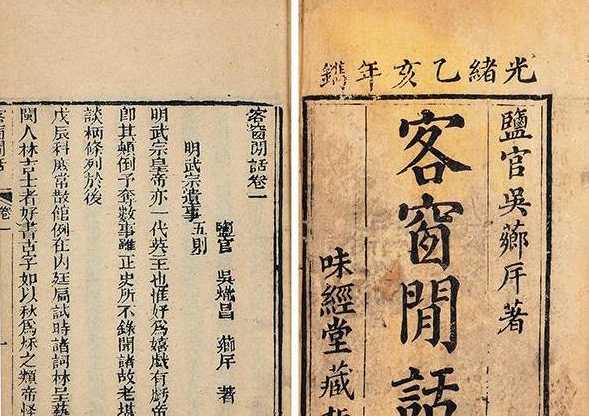 光緒乙亥年鐫
鹽官吳薌厈著
客窗閒話
味經堂藏板
客窗閒話卷一
明武宗遺事五則
鹽官 吳熾昌 薌厈 著
明武宗皇帝亦一代英主也惟好為嬉戲有戲帝
即其顛倒予奪數事雖正史所不錄聞諸故老堪
談柄條列於後
戊辰科庶常散館例在內廷扃試時諸詞林呈藝
閩人林吉士者好書古字如以秋為秌之類帝怪
客窗閒話 卷一